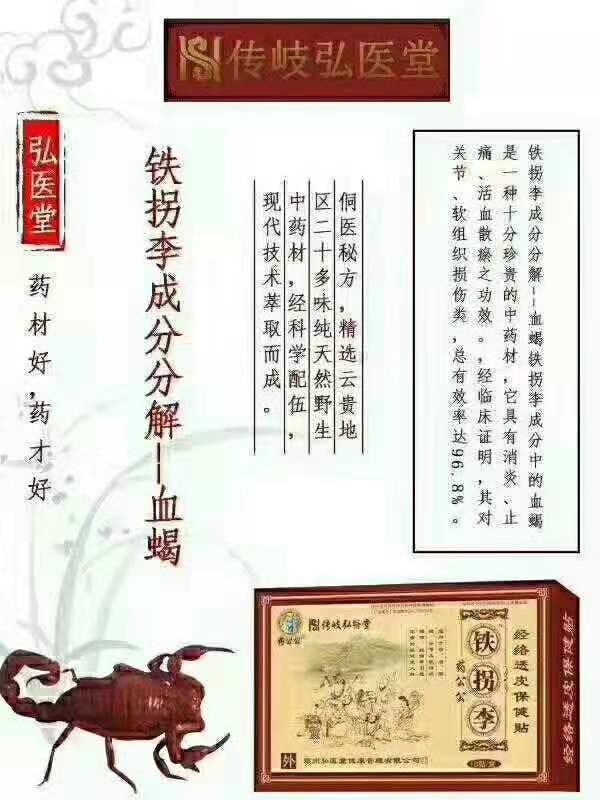 传岐弘医堂
弘医堂
药材好,药才好
铁拐李成分分解--血蝎
侗医秘方,精选云贵地
区二十多味纯天然野生
中药材,经科学配伍,
现代技术萃取而成。
铁拐李成分分解--血蝎铁拐李成分中的血蝎
是一种十分珍贵的中药材,它具有消炎、止
痛、活血散瘀之功效。,经临床证明,其对
关节、软组织损伤类,总有效率达96.8%。
传岐弘医堂
药公公
经络透皮保健贴
铁拐李
药公公
外
10贴/盒
经络透皮保健贴